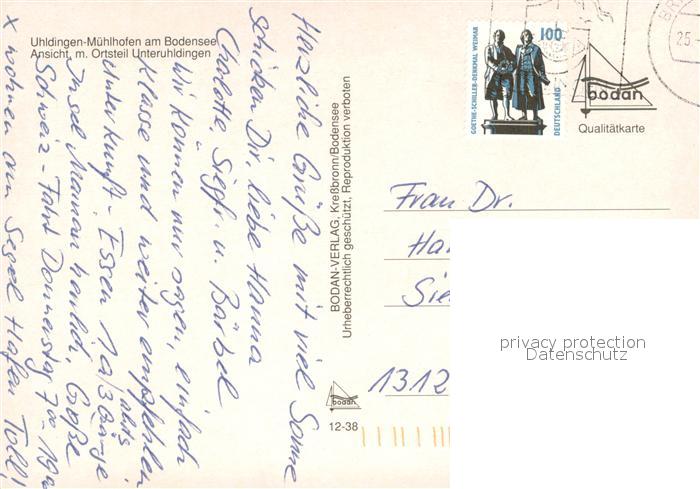 Uhldingen-Mühlhofen am Bodensee
Ansicht, m. Ortsteil Unteruhldingen
Herzliche Grüße mit viel Sonne
schicken Dir, liebe Hanna
Charlotte Siegfr. u. Bärbel
Wir können nur sagen, einfach
Klasse und weiter empfehlen
Unterkunft - Essen 1a/3Gänge
abds
Insel Mainau herrlich, Große
Schweiz-Fahrt Donnerstag 7⁰⁰-19⁰⁰
x wohnen am Segel Hafen Toll!
BODAN-VERLAG, Kreßbronn/Bodensee
Urheberrechtlich geschützt, Reproduktion verboten
bodan
12-38
GOETHE-SCHILLER-DENKMAL WEIMAR
100
DEUTSCHLAND
25.
bodan
Qualitätkarte
Frau Dr.
Ha
Sie
1312
privacy protection
Datenschutz